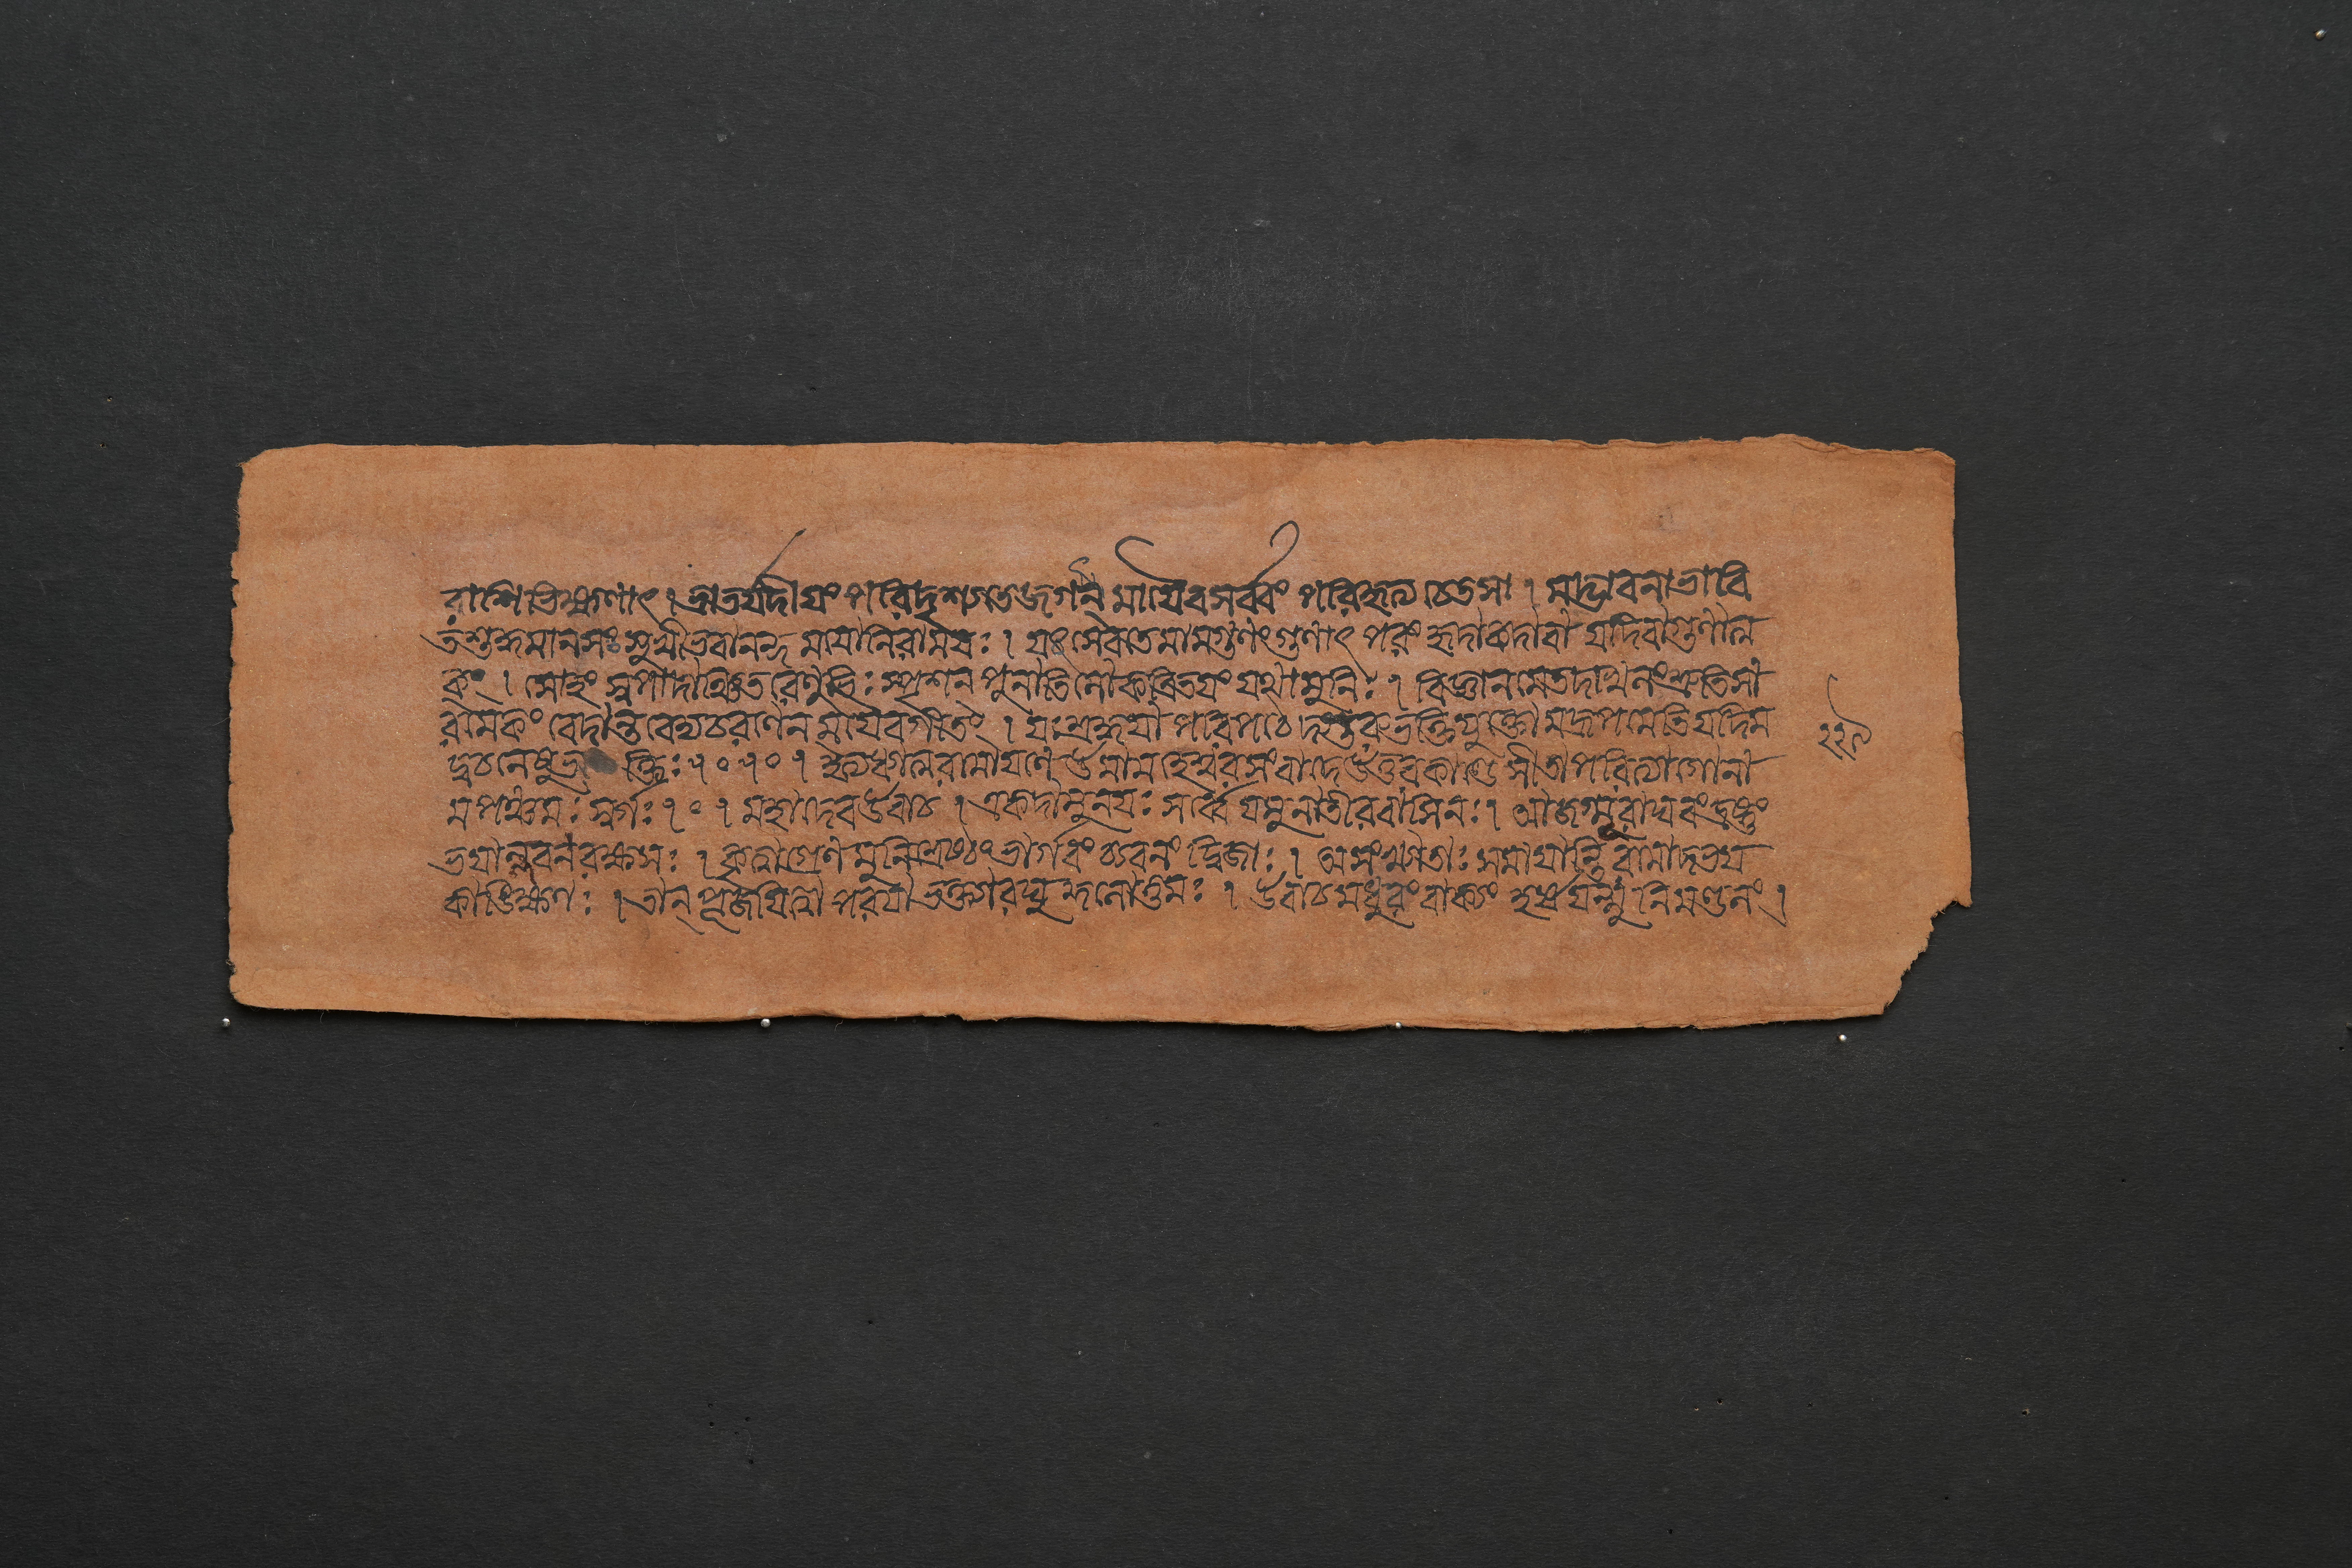 রাশির্বিভীষণাৎ । ভ্রাতর্যদীয়ং পরিদৃশ্যতে জগন্ মায়ৈব সর্ব্বং পরিহৃত্য চেতসা । মদ্ভাবনাভাবি
তশুদ্ধমানসঃ সুখী ভবানন্দময়ো নিরাময়ঃ । যঃ সেবতে মামগুণং গুণাৎ পরং হৃদা কদা বা যদি বা গুণাত্ম
কং । সোহং স্বপাদাঞ্চিতরেণুভিঃ স্পৃশন্ পুনাতি লোকত্রিতয়ং যথা মুনিঃ । বিজ্ঞানমেতদখিলং শ্রুতিসা
রমেকং বেদান্তবেদ্যচরণেন ময়ৈব গীতং । যঃ শ্রদ্ধয়া পরিপঠেদ্গুরুভক্তিযুক্তো মদ্রূপমেতি যদি ম
দ্বচনেষু ভক্তিঃ ৷৹ ৷৹ । ইত্যধ্যাত্মরামায়ণে উমামহেশ্বরসংবাদে উত্তরকাণ্ডে সীতাপরিত্যাগো না
ম পঞ্চমঃ সর্গঃ ।৹। মহাদেব উবাচ । একদা মুনয়ঃ সর্ব্বে যমুনাতীরবাসিনঃ । আজগ্মূ রাঘবং দ্রষ্টুং
ভয়াল্লবনরক্ষসঃ । কৃত্বাগ্রেণ মুনিশ্রেষ্ঠং ভার্গবং চ্যবনং দ্বিজাঃ । অসংখ্যাতাঃ সমায়ান্তি রামাদভয়
কাঙ্ক্ষিণঃ । তান্ পূজয়িত্বা পরয়া ভক্ত্যা রঘুনন্দনোত্তমঃ । উবাচ মধুরং বাক্যং হর্ষয়ন্মুনিমণ্ডলং ।
২২৯